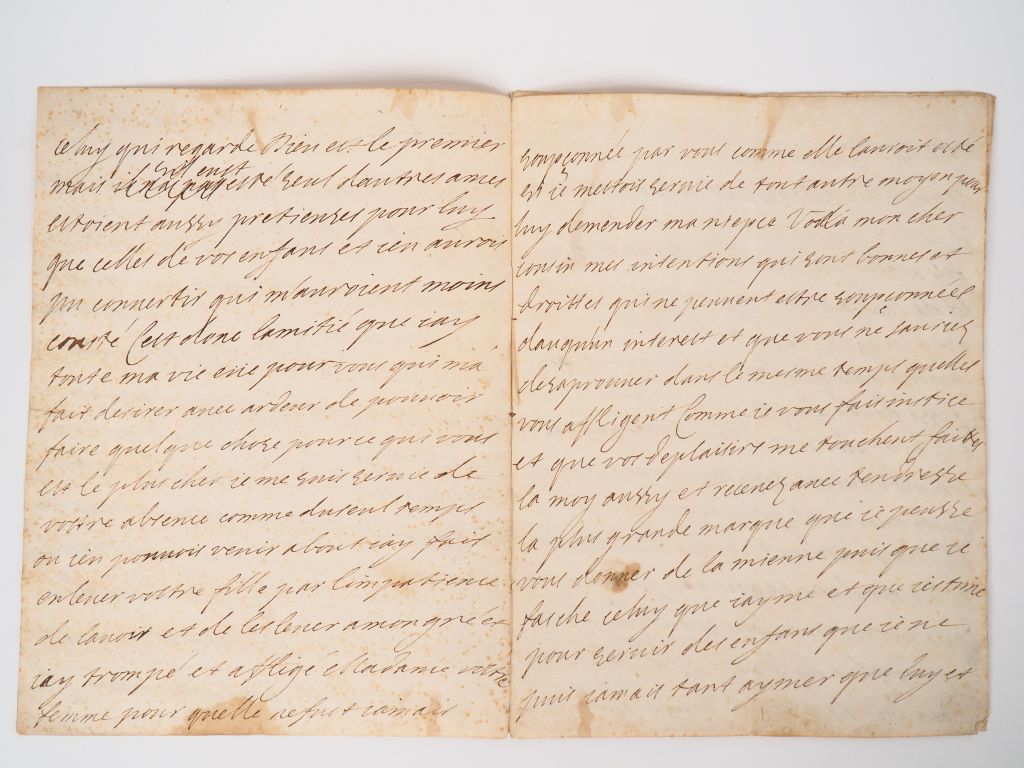 celuy qui regarde Dieu est le premier
sil eust
mais il esté seul dautres ames
estoient aussy pretieuses pour luy
que celles de vos enfans et ien aurois
pu convertir qui mauroient moins
cousté Cest donc lamitié que iay
toute ma vie eüe pour vous qui ma
fait desirer avec ardeur de pouvoir
faire quelque chose pour ce qui vous
est le plus cher ie me suis servie de
vostre absence comme du seul temps
ou ien pouvois venir about iay fait
enlever vostre fille par limpatience
de lavoir et de leslever amon gré et
iay trompé et affligé Madame vostre
femme pour quelle ne fust iamais
soupçonnée par vous comme elle lauroit esté
si ie mestois servie de tout autre moyen pour
luy demender ma niepce Voila mon cher
cousin mes intentions qui sont bonnes et
droittes qui ne peuvent estre soupçonnées
dauqu'un interest et que vous ne sauriez
desaprouver dans le mesme temps quelles
vous affligent Comme ie vous fais iustice
et que vos deplaisirs me touchent faites
la moy aussy et recevez avec tendresse
la plus grande marque que ie pensse
vous donner de la mienne puis que ie
fasche celuy que iayme et que iestime
pour servir des enfans que ie ne
puis iamais tant aymer que luy et